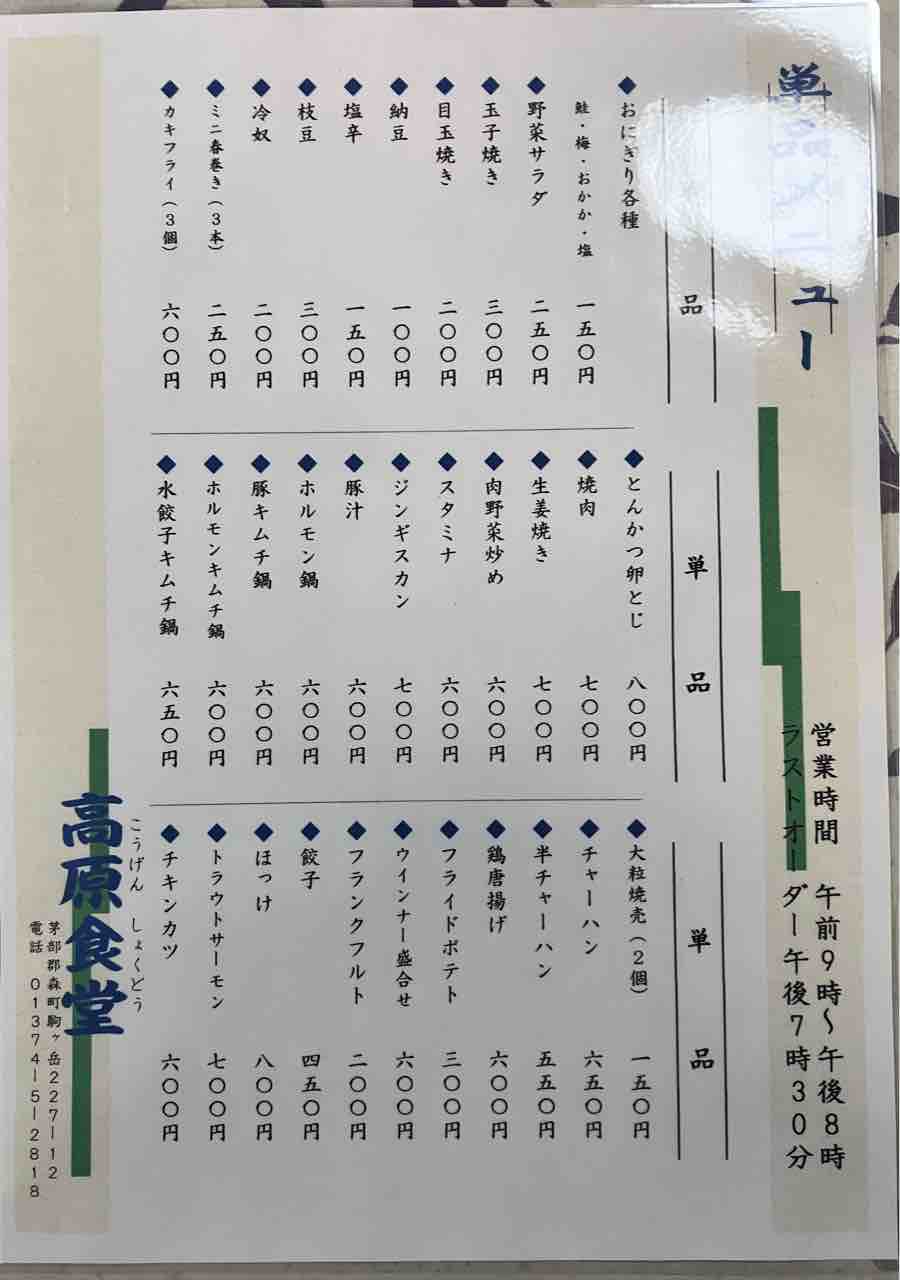 単品メニュー
営業時間　午前9時〜午後8時
ラストオーダー午後7時30分
品
◆おにぎり各種
鮭・梅・おかか・塩　一五〇円
◆野菜サラダ　二五〇円
◆玉子焼き　三〇〇円
◆目玉焼き　二〇〇円
◆納豆　一〇〇円
◆塩辛　一五〇円
◆枝豆　三〇〇円
◆冷奴　二〇〇円
◆ミニ春巻き（3本）　二五〇円
◆カキフライ（3個）　六〇〇円
単品
◆とんかつ卵とじ　八〇〇円
◆焼肉　七〇〇円
◆生姜焼き　七〇〇円
◆肉野菜炒め　六〇〇円
◆スタミナ　六〇〇円
◆ジンギスカン　七〇〇円
◆豚汁　六〇〇円
◆ホルモン鍋　六〇〇円
◆豚キムチ鍋　六〇〇円
◆ホルモンキムチ鍋　六〇〇円
◆水餃子キムチ鍋　六五〇円
単品
◆大粒焼売（2個）　一五〇円
◆チャーハン　六五〇円
◆半チャーハン　五五〇円
◆鶏唐揚げ　六〇〇円
◆フライドポテト　三〇〇円
◆ウインナー盛合せ　六〇〇円
◆フランクフルト　二〇〇円
◆餃子　四五〇円
◆ほっけ　八〇〇円
◆トラウトサーモン　七〇〇円
◆チキンカツ　六〇〇円
こうげん　しょくどう
高原食堂
茅部郡森町駒ヶ岳227-12
電話　01374-5-2818